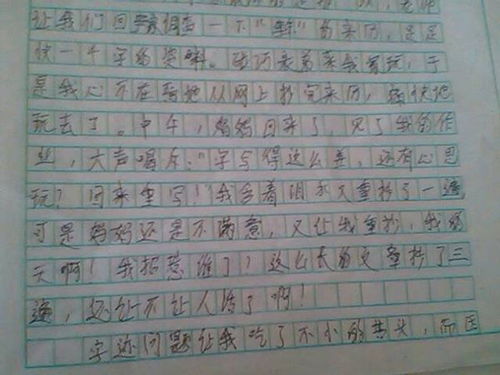 让我们回家调查一下"蚌"的来历，足足
快一千字的资料。碰巧表弟来我家玩，于
是我心不在焉地从网上抄完来历，赶快地
玩去了。中午，妈妈回来了，见了我的作
业，大声喝斥："字写得这么差，还有心思
玩？回来重写！"我含着泪水又重抄了一遍，
可是妈妈还是不满意，又让我重抄，我的
天啊！我招惹谁了？这么长的文章抄了三
遍，还让不让人活了啊！
字迹问题让我吃了不小的苦头，而且